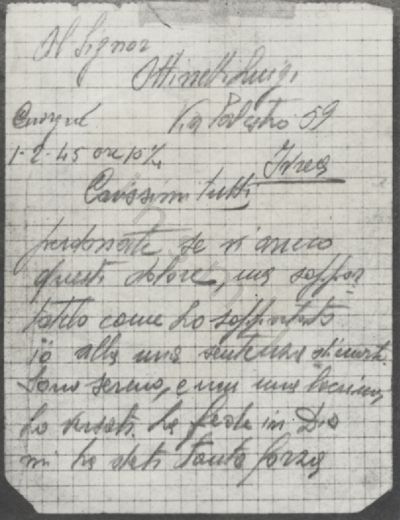 Al Signor
Ottinetti Luigi
Via Palestro 59
Cuorgnè
1-2-45 ore 10½
Ivrea
Carissimi tutti
perdonate se vi arreco
questo dolore, ma soppor
tatelo come ho sopportato
io alla mia sentenza di morte.
Sono sereno, e non una lacrima,
ho versato. La fede in Dio
mi ha dato tanta forza